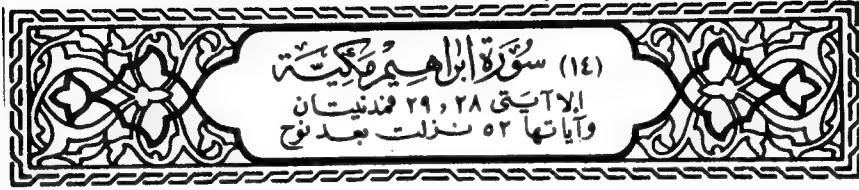 (١٤) سُوْرَة ابْرَاهِيْم مَكِّيَّة
إلا آيَتَى ٢٨ ، ٢٩ فمدنيتان
وآياتها ٥٢ نزلت بعد نوح